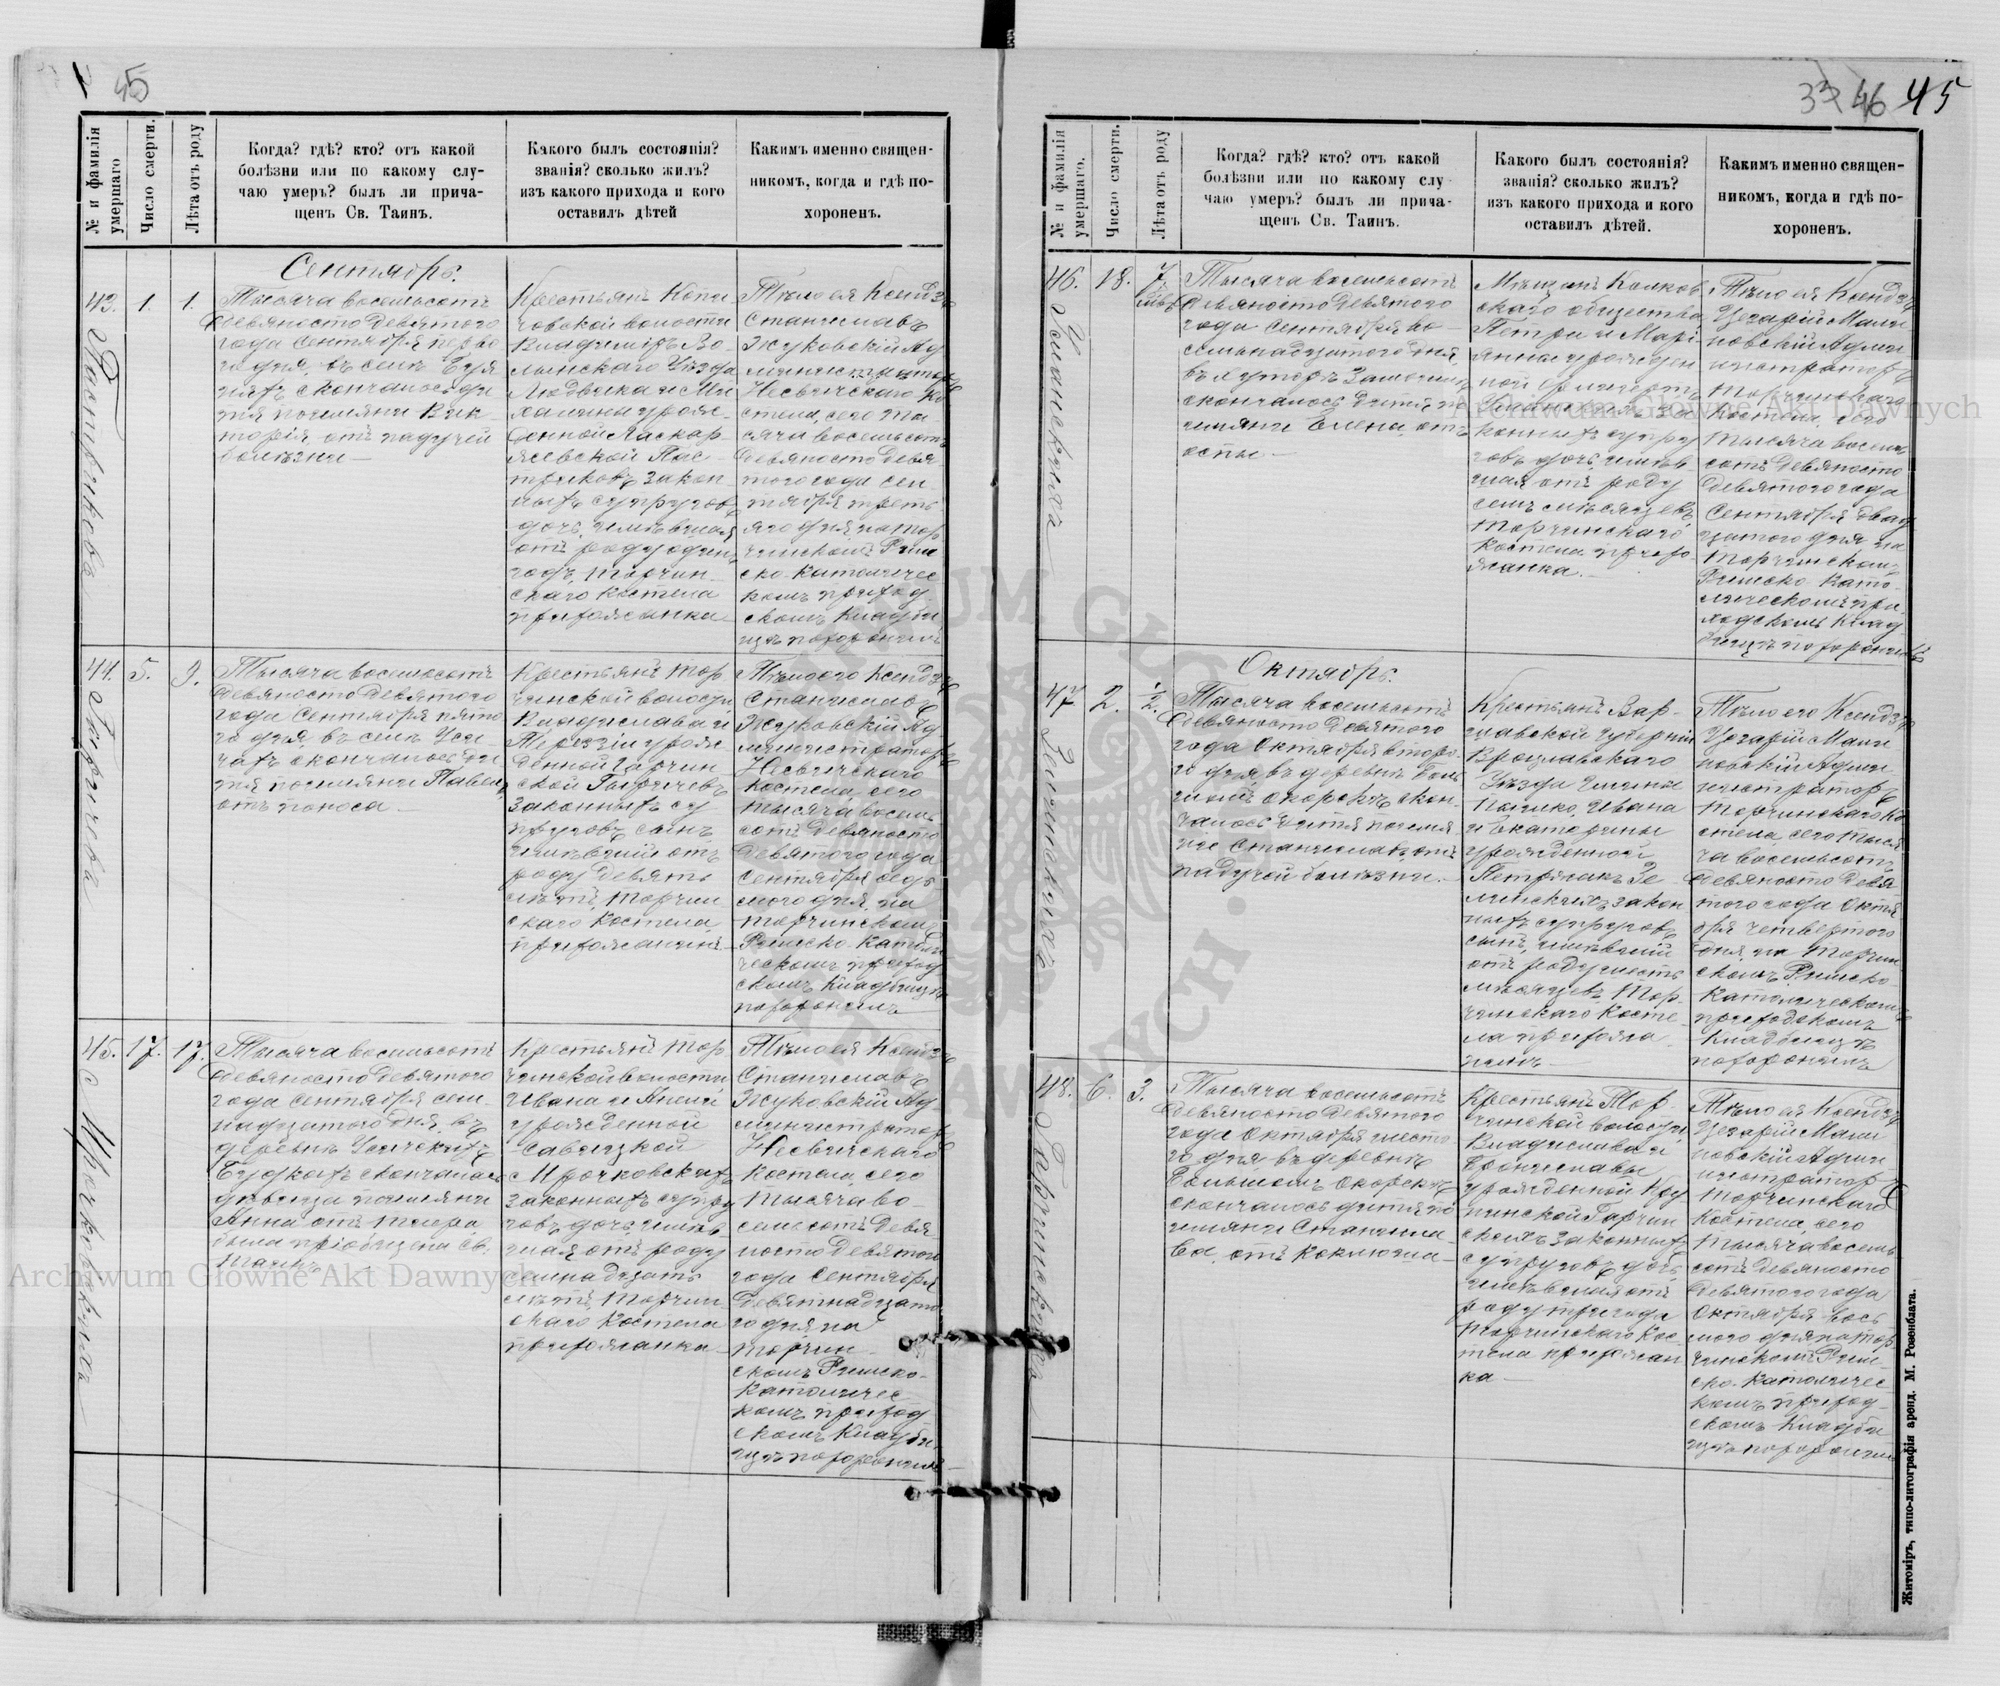 45
№ и фамилія умершаго
Число смерти.
Лѣта отъ роду
Когда? гдѣ? кто? отъ какой
болѣзни или по какому слу-
чаю умеръ? былъ ли прича-
щенъ Св. Таинъ.
Какого былъ состоянія?
званія? сколько жилъ?
изъ какого прихода и кого
оставилъ дѣтей
Какимъ именно священ-
никомъ, когда и гдѣ по-
хороненъ.
Сентябрь.
43.
1.
1.
Тысяча восемьсотъ
девяносто девятого
года Сентября перво
го дня, въ селѣ
скончалось ди
тя поимяни Вик
торія, отъ падучей
болѣзни
Крестьянъ
човской волости
Владиміръ Во-
лынскаго Уѣзда
Людвика и Ми
халины урож-
денной
законныхъ супруговъ
дочь, имѣвшая
отъ роду одинъ
годъ, Торчин-
скаго Костела
прихожанка
Тѣло ея Ксендзъ
Станиславъ
Жуковскій Ад
министраторъ
Несвичскаго Ко
стела, сего ты
сяча восемьсотъ
девяносто девя-
того года Сен-
тября треть
яго дня на Тор
чинскомъ Рим
ско-Католичес
комъ приход-
скомъ Кладби
щѣ похоронилъ
44.
5.
9.
Тысяча восемьсотъ
девяносто девятого
года Сентября пято
го дня, въ селѣ
скончалось ди
тя поимяни Павелъ,
отъ поноса
Крестьянъ Тор
чинской волости
Владислава и
Терезіи урож
денной Гарчин
ской
законныхъ су
пруговъ сынъ
имѣвшій отъ
роду девять
лѣтъ, Торчин
скаго Костела
прихожанинъ
Тѣло его Ксендзъ
Станиславъ
Жуковскій Ад
министраторъ
Несвичскаго
Костела сего
тысяча восемь
сотъ девяносто
девятого года
Сентября седь
мого дня, на
Торчинскомъ
Римско-Католи
ческомъ приход
скомъ Кладбищѣ
похоронилъ
45.
17.
17.
Мрочковская
Тысяча восемьсотъ
девяносто девятого
года Сентября сем-
надцатого дня, въ
деревнѣ
Будкахъ скончалась
дѣвица поимяни
Анна отъ тифа
была пріобщена Св.
Таинъ
Крестьянъ Тор
чинской волости
Ивана и Анели
урожденной
Савицкой
Мрочковскихъ
законныхъ супру
говъ дочь, имѣв
шая отъ роду
семнадцать
лѣтъ, Торчин-
скаго Костела
прихожанка
Тѣло ея Ксендзъ
Станиславъ
Жуковскій Ад
министраторъ
Несвичскаго
Костела, сего
тысяча во-
семьсотъ девя
носто девятого
года Сентября
девятнадцато
го дня на
Торчин-
скомъ Римско-
Католичес-
комъ приход
скомъ Кладби
щѣ похоронилъ
46 45
№ и фамилія умершаго.
Число смерти.
Лѣта отъ роду
Когда? гдѣ? кто? отъ какой
болѣзни или по какому слу-
чаю умеръ? былъ ли прича-
щенъ Св. Таинъ.
Какого былъ состоянія?
званія? сколько жилъ?
изъ какого прихода и кого
оставилъ дѣтей.
Какимъ именно священ-
никомъ, когда и гдѣ по-
хороненъ.
46.
18.
7
Уманская
Тысяча восемьсотъ
девяносто девятого
года Сентября во-
семьнадцатого дня,
въ хуторѣ
скончалось дитя по
имяни Елена, отъ
оспы
Мѣщанъ Колков
скаго общества
Петра и Марі
янны урожден
ной
законныхъ супру
говъ дочь, имѣв
шая отъ роду
семь мѣсяцевъ
Торчинскаго
Костела прихо
жанка.
Тѣло ея Ксендзъ
Цезарій Мали
новскій Админ
истраторъ
Торчинскаго
Костела, сего
тысяча восемь
сотъ девяносто
девятого года
Сентября двад
цатого дня на
Торчинскомъ
Римско-Като-
лическомъ при
ходскомъ Клад
бищѣ похоронилъ
Октябрь.
47
2.
1/2.
Зелинскихъ
Тысяча восемьсотъ
девяносто девятого
года Октября второ
го дня, въ деревнѣ Боль
шомъ Окорскѣ скон-
чалось дитя поимя
ни Станиславъ, отъ
падучей болѣзни.
Крестьянъ Вар-
шавской Губерніи
Уѣзда Гмины
Ивана
и Екатерины
урожденной
Петрякъ Зе
линскихъ закон
ныхъ супруговъ
сынъ, имѣвшій
отъ роду шесть
мѣсяцевъ Тор-
чинскаго Косте-
ла прихожа
нинъ
Тѣло его Ксендзъ
Цезарій Мали
новскій Адми
нистраторъ
Торчинскаго Ко
стела, сего тыся
ча восемьсотъ
девяносто девя-
того года Октя
бря четвертого
дня, на Торчин
скомъ Римско-
Католическомъ
приходскомъ
Кладбищѣ
похоронилъ
48.
6.
3.
Тысяча восемьсотъ
девяносто девятого
года Октября шесто
го дня, въ деревнѣ
Большомъ Окорскѣ
скончалось дитя по
имяни Станисла-
ва, отъ коклюша
Крестьянъ Тор-
чинской волости
Владислава и
Брониславы
урожденной Кру
пинской Гарчин
скихъ законныхъ
супруговъ дочь
имѣвшая отъ
роду три года
Торчинскаго Кос
тела прихожан
ка
Тѣло ея Ксендзъ
Цезарій Мали
новскій Админ
истраторъ
Торчинскаго
Костела, сего
тысяча восемь
сотъ девяносто
девятого года
Октября вось
мого дня на Тор
чинскомъ Рим-
ско-Католичес
комъ приход-
скомъ Кладби
щѣ похоронилъ
Житомiръ, типо-литографія аренд. М. Розенблата.
Archiwum Główne Akt Dawnych
Archiwum Główne Akt Dawnych